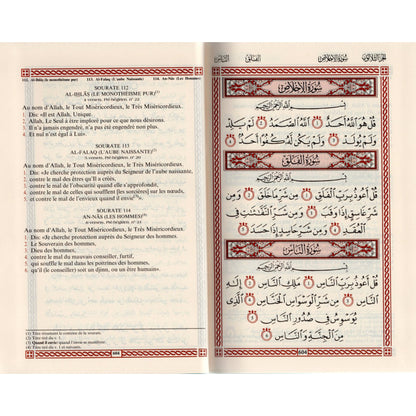 112. Al-Ihlâs (Le monothéisme pur) 113. Al-Falaq (L'aube Naissante) 114. An-Nâs (Les Hommes)
SOURATE 112
AL-IHLÂS (LE MONOTHÉISME PUR)(1)
Au nom d'Allah, le Tout Miséricordieux, le Très Miséricordieux.
1. Dis: «Il est Allah, Unique.
2. Allah, Le Seul à être imploré pour ce que nous désirons.
3. Il n'a jamais engendré, n'a pas été engendré non plus.
4. Et nul n'est égal à Lui».
SOURATE 113
AL-FALAQ (L'AUBE NAISSANTE)(2)
5 versets, Pré-hégirien, n° 20
Au nom d'Allah, le Tout Miséricordieux, le Très Miséricordieux.
1. Dis: «Je cherche protection auprès du Seigneur de l'aube naissante,
2. contre le mal des êtres qu'Il a créés,
3. contre le mal de l'obscurité quand elle s'approfondit,
4. contre le mal de celles qui soufflent [les sorcières] sur les nœuds,
5. et contre le mal de l'envieux quand il envie».
SOURATE 114
AN-NÂS (LES HOMMES)
6 versets, Pré-hégirien, n° 21
Au nom d'Allah, le Tout Miséricordieux, le Très Miséricordieux.
1. Dis: «Je cherche protection auprès du Seigneur des hommes.
2. Le Souverain des hommes,
3. Dieu des hommes,
4. contre le mal du mauvais conseiller, furtif,
5. qui souffle le mal dans les poitrines des hommes,
6. qu'il (le conseiller) soit un djinn, ou un être humain».
(1) Titre résumant le contenu de la sourate.
(2) Titre tiré du v. 1.
(4) Titre tiré du v. 1 et suivants.
604
الناس الفلق سورة الإخلاص الجزء الثلاثون
سُورَةُ الإِخْلَاصِ
بِسْمِ اللَّهِ الرَّحْمَٰنِ الرَّحِيمِ
قُلْ هُوَ اللَّهُ أَحَدٌ ١ اللَّهُ الصَّمَدُ ٢ لَمْ يَلِدْ
وَلَمْ يُولَدْ ٣ وَلَمْ يَكُن لَّهُ كُفُوًا أَحَدٌ ٤
سُورَةُ الفَلَقِ
بِسْمِ اللَّهِ الرَّحْمَٰنِ الرَّحِيمِ
قُلْ أَعُوذُ بِرَبِّ الْفَلَقِ ١ مِن شَرِّ مَا خَلَقَ ٢ وَمِن
شَرِّ غَاسِقٍ إِذَا وَقَبَ ٣ وَمِن شَرِّ النَّفَّاثَاتِ فِي
الْعُقَدِ ٤ وَمِن شَرِّ حَاسِدٍ إِذَا حَسَدَ ٥
سُورَةُ النَّاسِ
بِسْمِ اللَّهِ الرَّحْمَٰنِ الرَّحِيمِ
قُلْ أَعُوذُ بِرَبِّ النَّاسِ ١ مَلِكِ النَّاسِ ٢
إِلَٰهِ النَّاسِ ٣ مِن شَرِّ الْوَسْوَاسِ الْخَنَّاسِ ٤ الَّذِي
يُوَسْوِسُ فِي صُدُورِ النَّاسِ ٥
مِنَ الْجِنَّةِ وَالنَّاسِ ٦
604